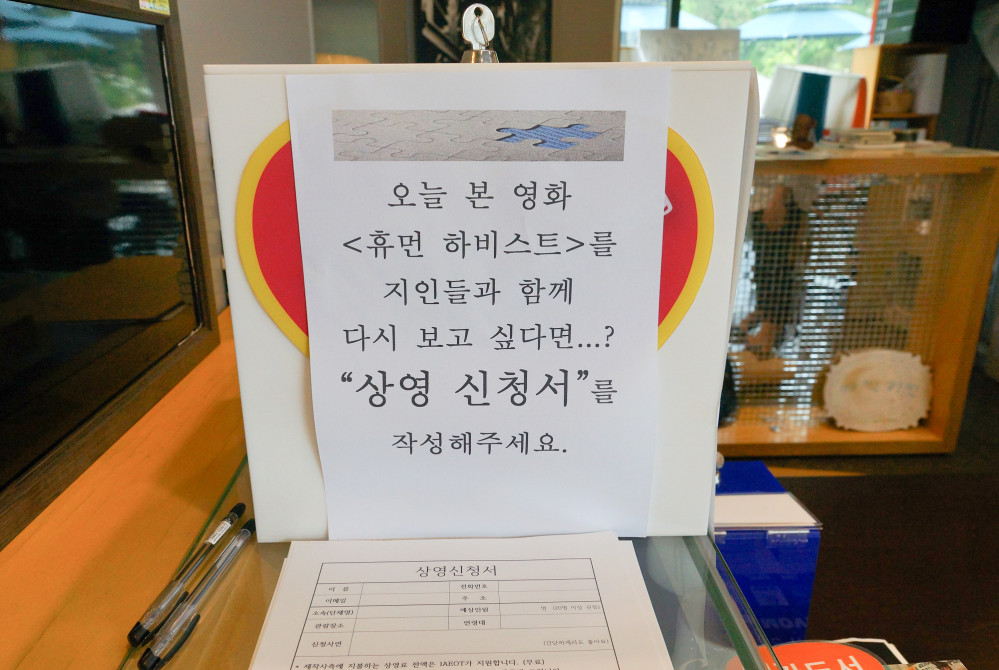 오늘 본 영화
<휴먼 하비스트>를
지인들과 함께
다시 보고 싶다면...?
“상영 신청서”를
작성해주세요.
상영신청서
이 름
전화번호
이메일
주 소
소속(단체명)
예상인원
명 (10명 이상 신청)
관람장소
연령대
신청사연
(간단하게라도 좋아요)
* 제작사측에 지불하는 상영료 전액은 IAEOT가 지원합니다. (무료)